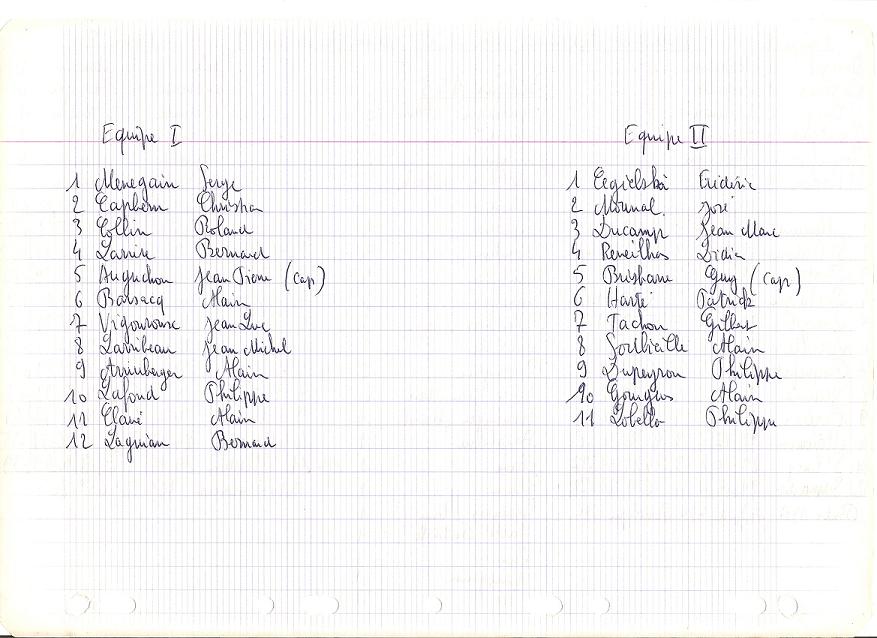 Equipe I
1 Menegain Serge
2 Capbern Christian
3 Collin Roland
4 Larrive Bernard
5 Auguchon Jean Pierre (Cap)
6 Batsacq Alain
7 Vigouroux Jean Luc
8 Larribeau Jean Michel
9 Alain
10 Lafond Philippe
11 Clavé Alain
12 Laguian Bernard
Equipe II
1 Cegielski Frédéric
2 José
3 Ducamp Jean Marc
4 Reneilhas Didier
5 Brisbane Guy (Cap)
6 Harté Patrick
7 Tachon Gilbert
8 Soulbieille Alain
9 Dupeyron Philippe
10 Gourgues Alain
11 Lobello Philippe